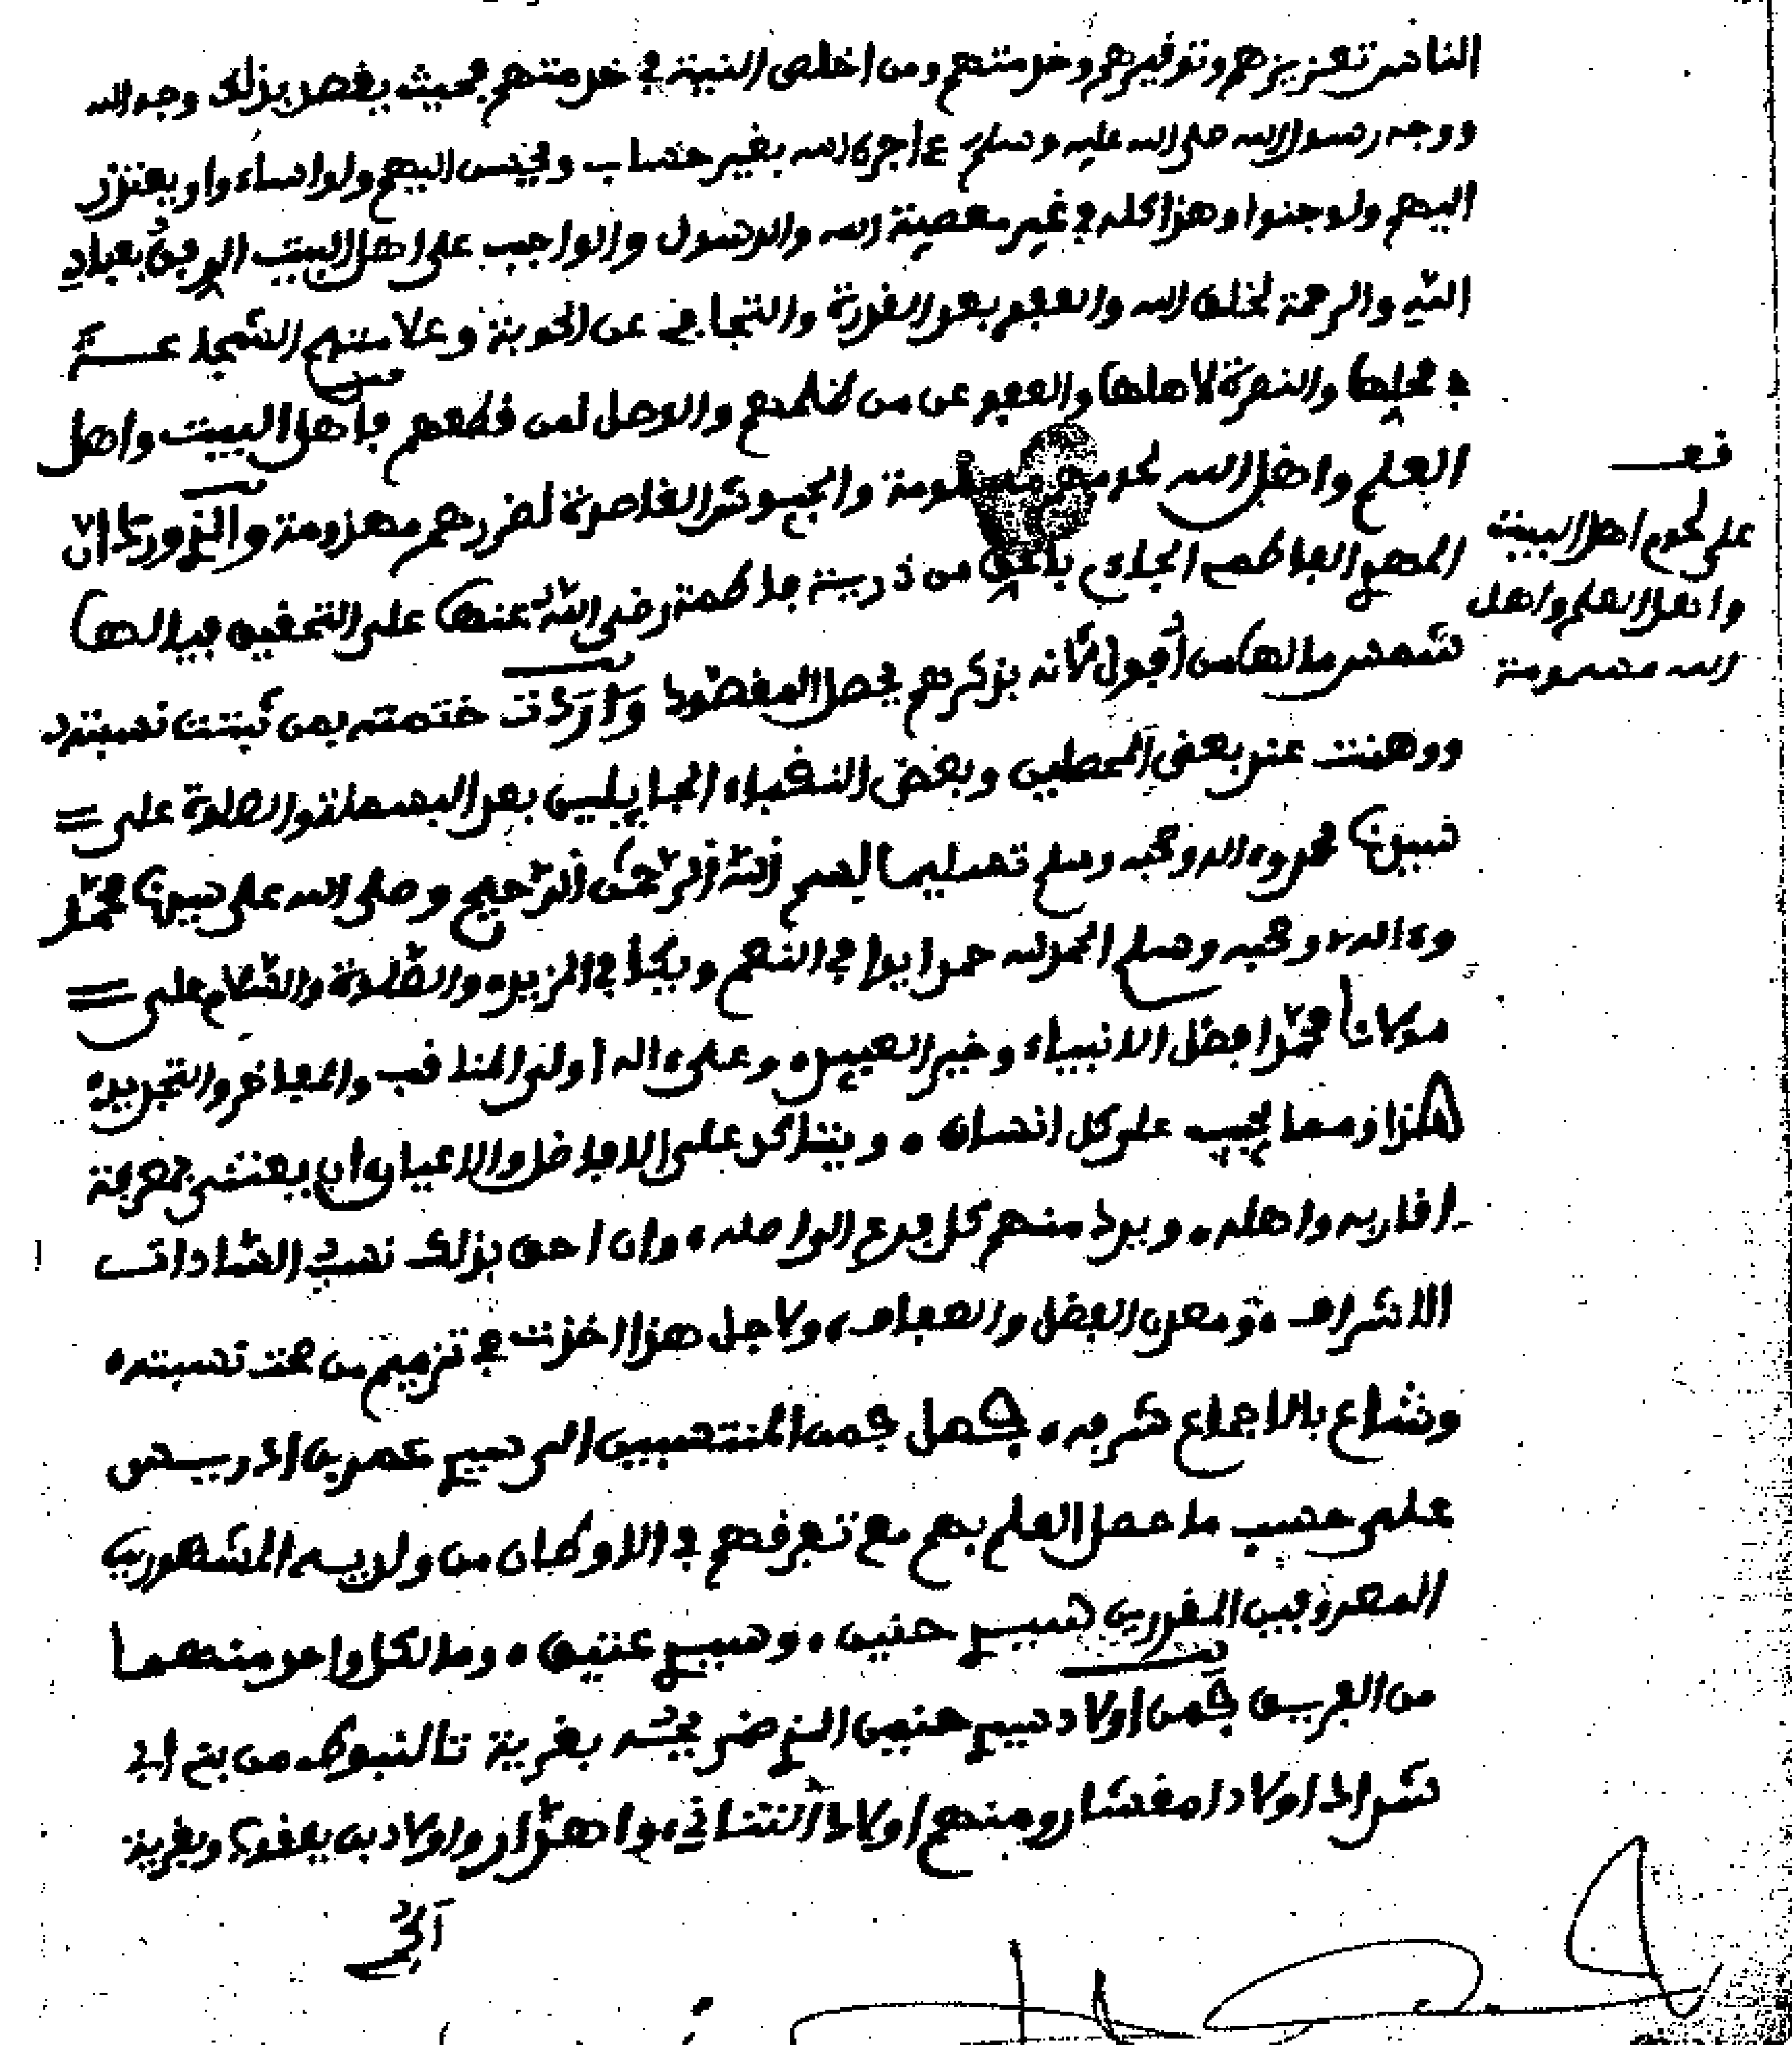 الناس تعزيزهم وتوفيرهم وخدمتهم ومن اخلص النية في خدمتهم بحيث يقصد بذلك وجه الله
ووجه رسول الله صلى الله عليه وسلم اجره الله بغير حساب ويحسن اليهم ولو اساءوا ويعتذر
اليهم ولو جنوا وهذا كله في غير معصية الله والرسول والواجب على اهل البيت الرفق بعباد
الله والرحمة لخلق الله والعفو بعد القدرة والتجافي عن الحوبة وعلامتهم الشجاعة
في محلها والنصرة لاهلها والعفو عن من ظلمهم والوصل لمن قطعهم فاهل البيت واهل
العلم واهل الله لحومهم مسمومة والجيوش القاصدة لضررهم مهزومة
المهدي الفاطمي الجاءي بالحق من ذرية فاطمة رضي الله عنها على التحقيق فيا لها
شمس ما لها من أفول لأنه بذكرهم يحصل المقصود وأردت ختمته بمن ثبتت نسبته
ووهنت عند بعض المحصلين وبعض النقباء الجايليين بعد البسملة والصلوة على
نبينا محمد وءاله وصحبه وسلم تسليما بسم الله الرحمن الرحيم وصلى الله على نبينا محمد
وءاله وصحبه وسلم الحمد لله حمدا يوافي النعم ويكافي المزيد والصلوة والسلام على
مولانا محمد افضل الانبياء وخير العبيد وعلى ءاله أولى المناقب والمفاخر والتجريد
هذا ومما يجب على كل انسان ويتاكد على الافاضل والاعيان ان يعتني بمعرفة
اقاربه واهله ويرد منهم كل فرع الى اصله وان احق بذلك نسب السادات
الاشراف ومعدن الفضل والعفاف ولاجل هذا اخذت في ترميم من صحت نسبته
وشاع بالاجماع شرفه فصل فمن المنتسبين الى سيدي عمر بن ادريس
على حسب ما حصل العلم بهم مع تفرقهم في الاوطان من ولديه المشهورين
المعروفين المقررين سيدي حنين وسيدي عتيق وما لكل واحد منهما
من الفريق فمن اولاد سيدي حنين الذي ضريحه بقرية تالنبوط من بني ابي
شداد اولاد امغشارو ومنهم اولاد النتنافي واهرار واولاد بن يعقوب وبقرية
فعـ
على لحوم اهل البيت
واهل العلم واهل
الله مسمومة